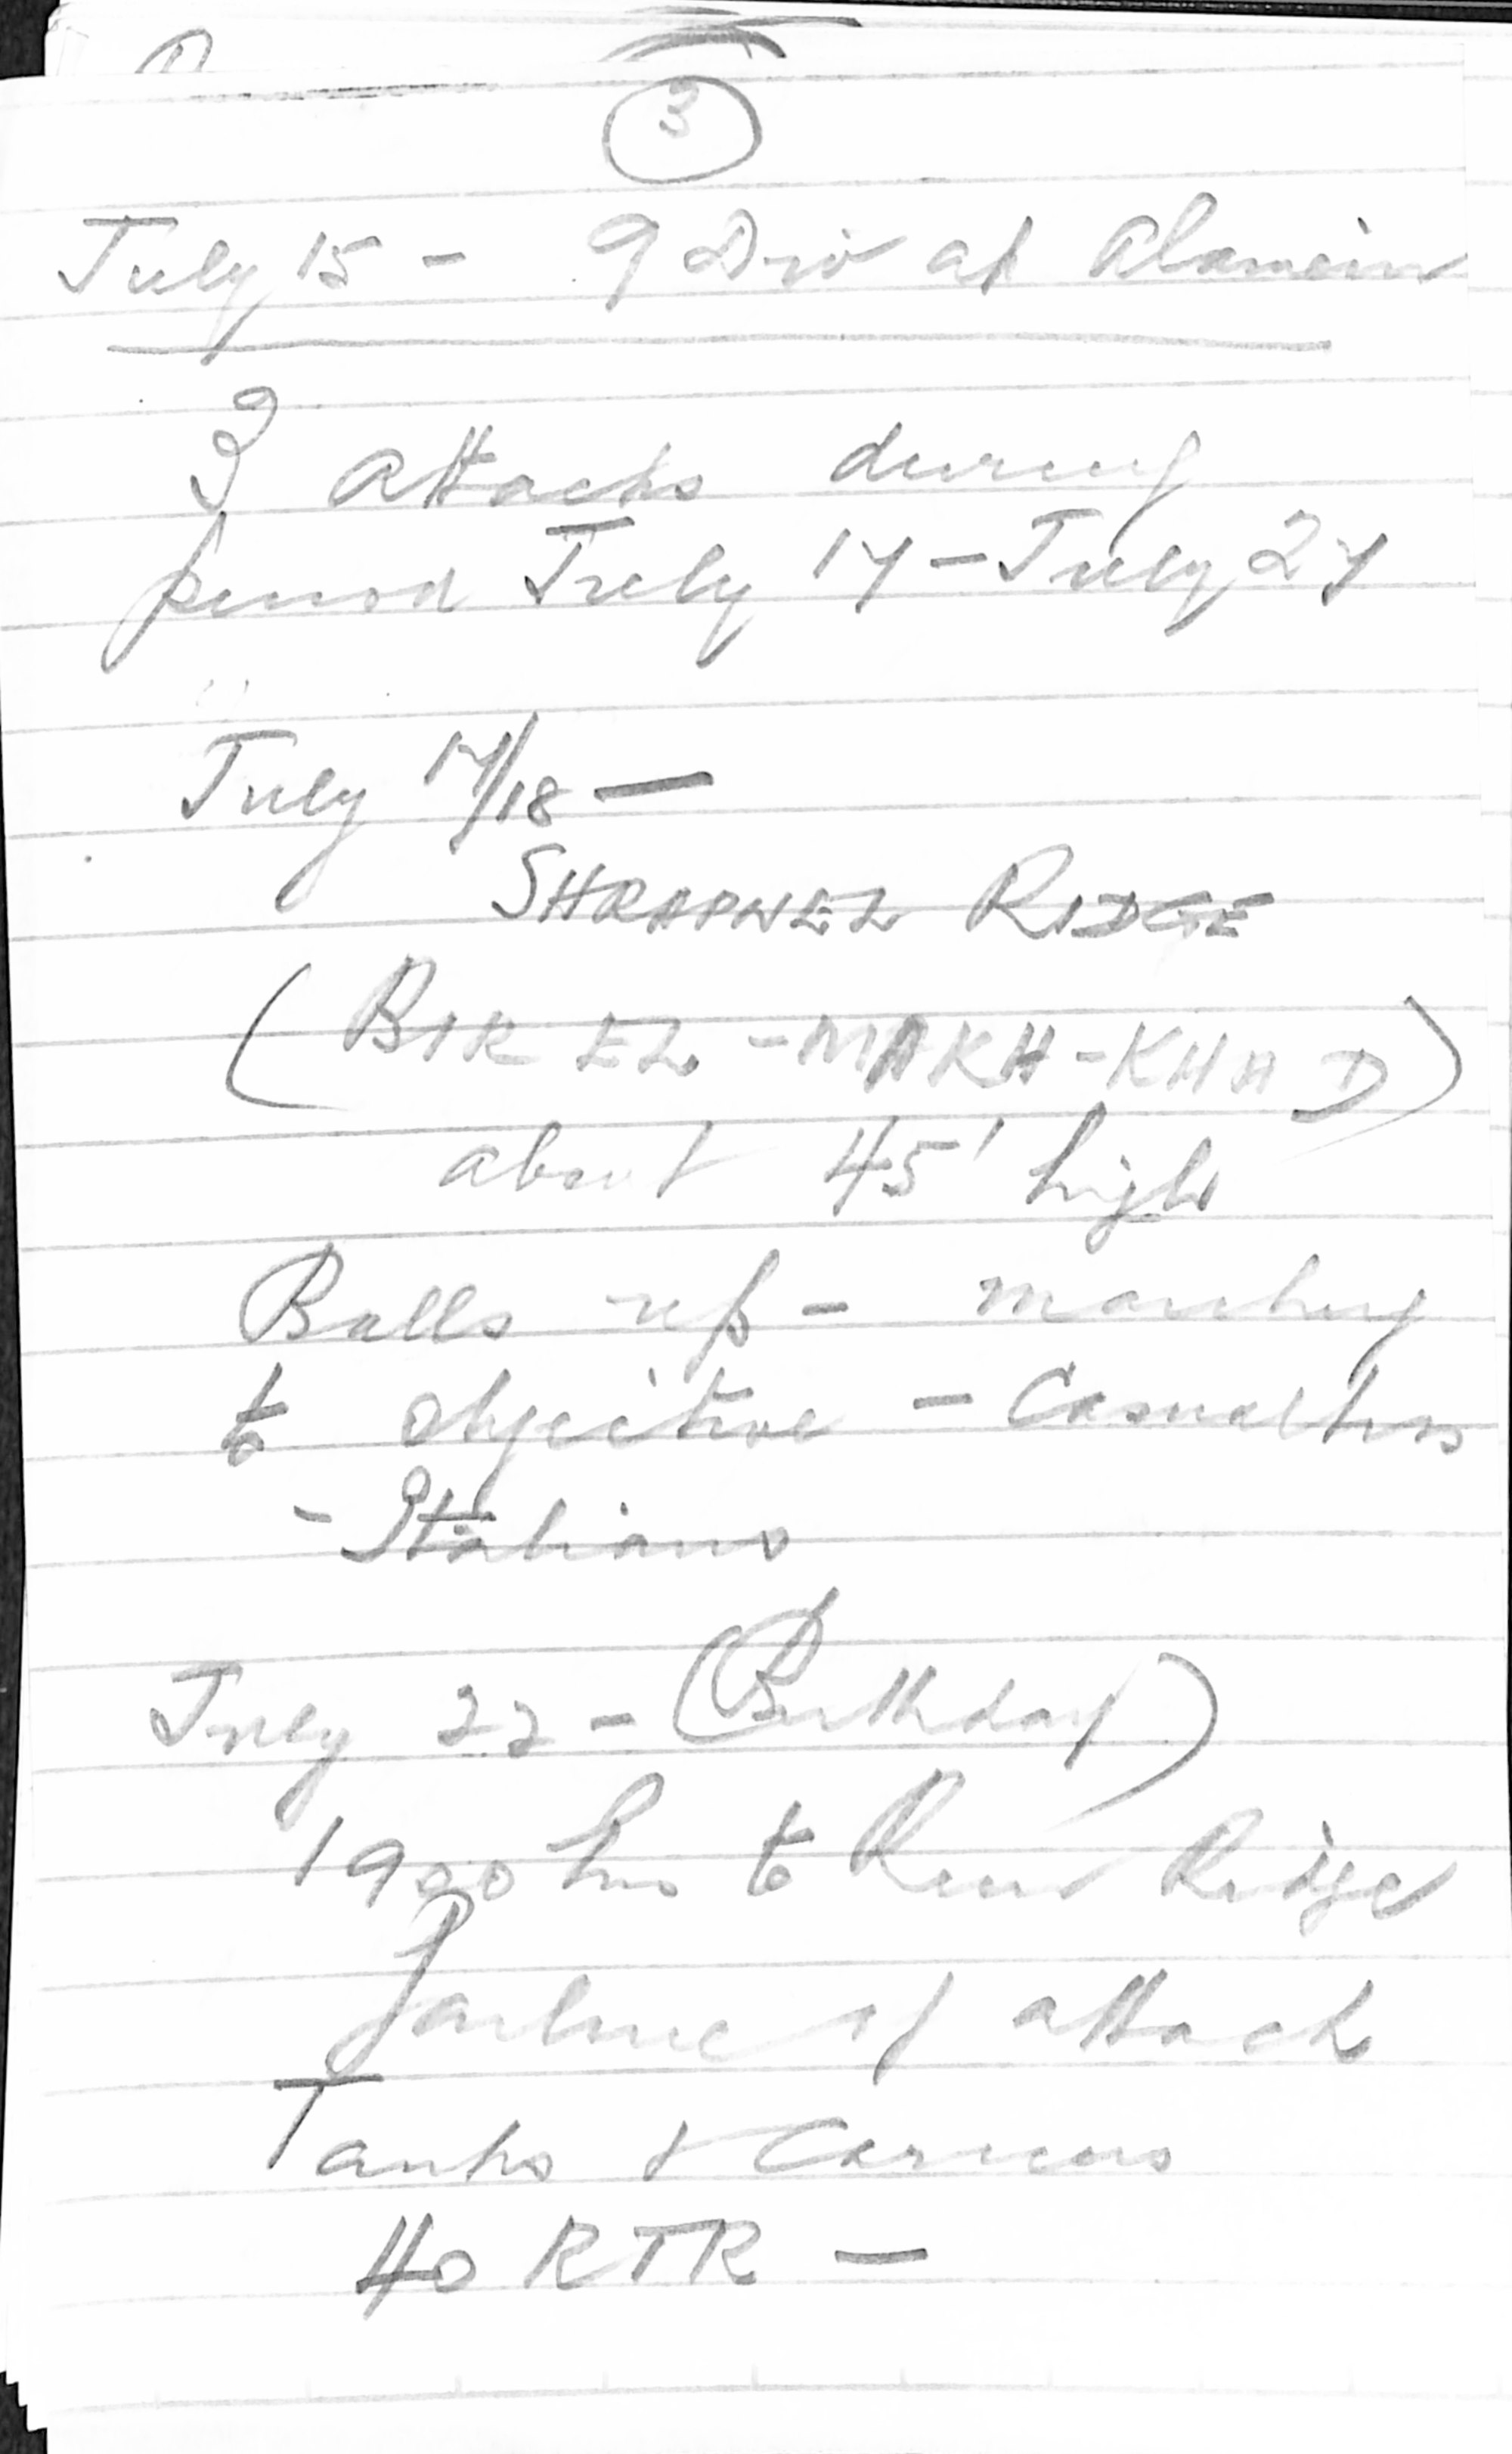 3
July 15 - 9 Div at Alamein
3 attacks during
period July 17 - July 27
July 17/18 -
SHRAPNEL RIDGE
(BIR EL - MAKH - KHAD)
about 45' high
Balls up - marching
to objective - Casualties
- Italians
July 22 - (Birthday)
1900 hrs to Ruin Ridge
Failure of attack
Tanks & Carriers
40 RTR -